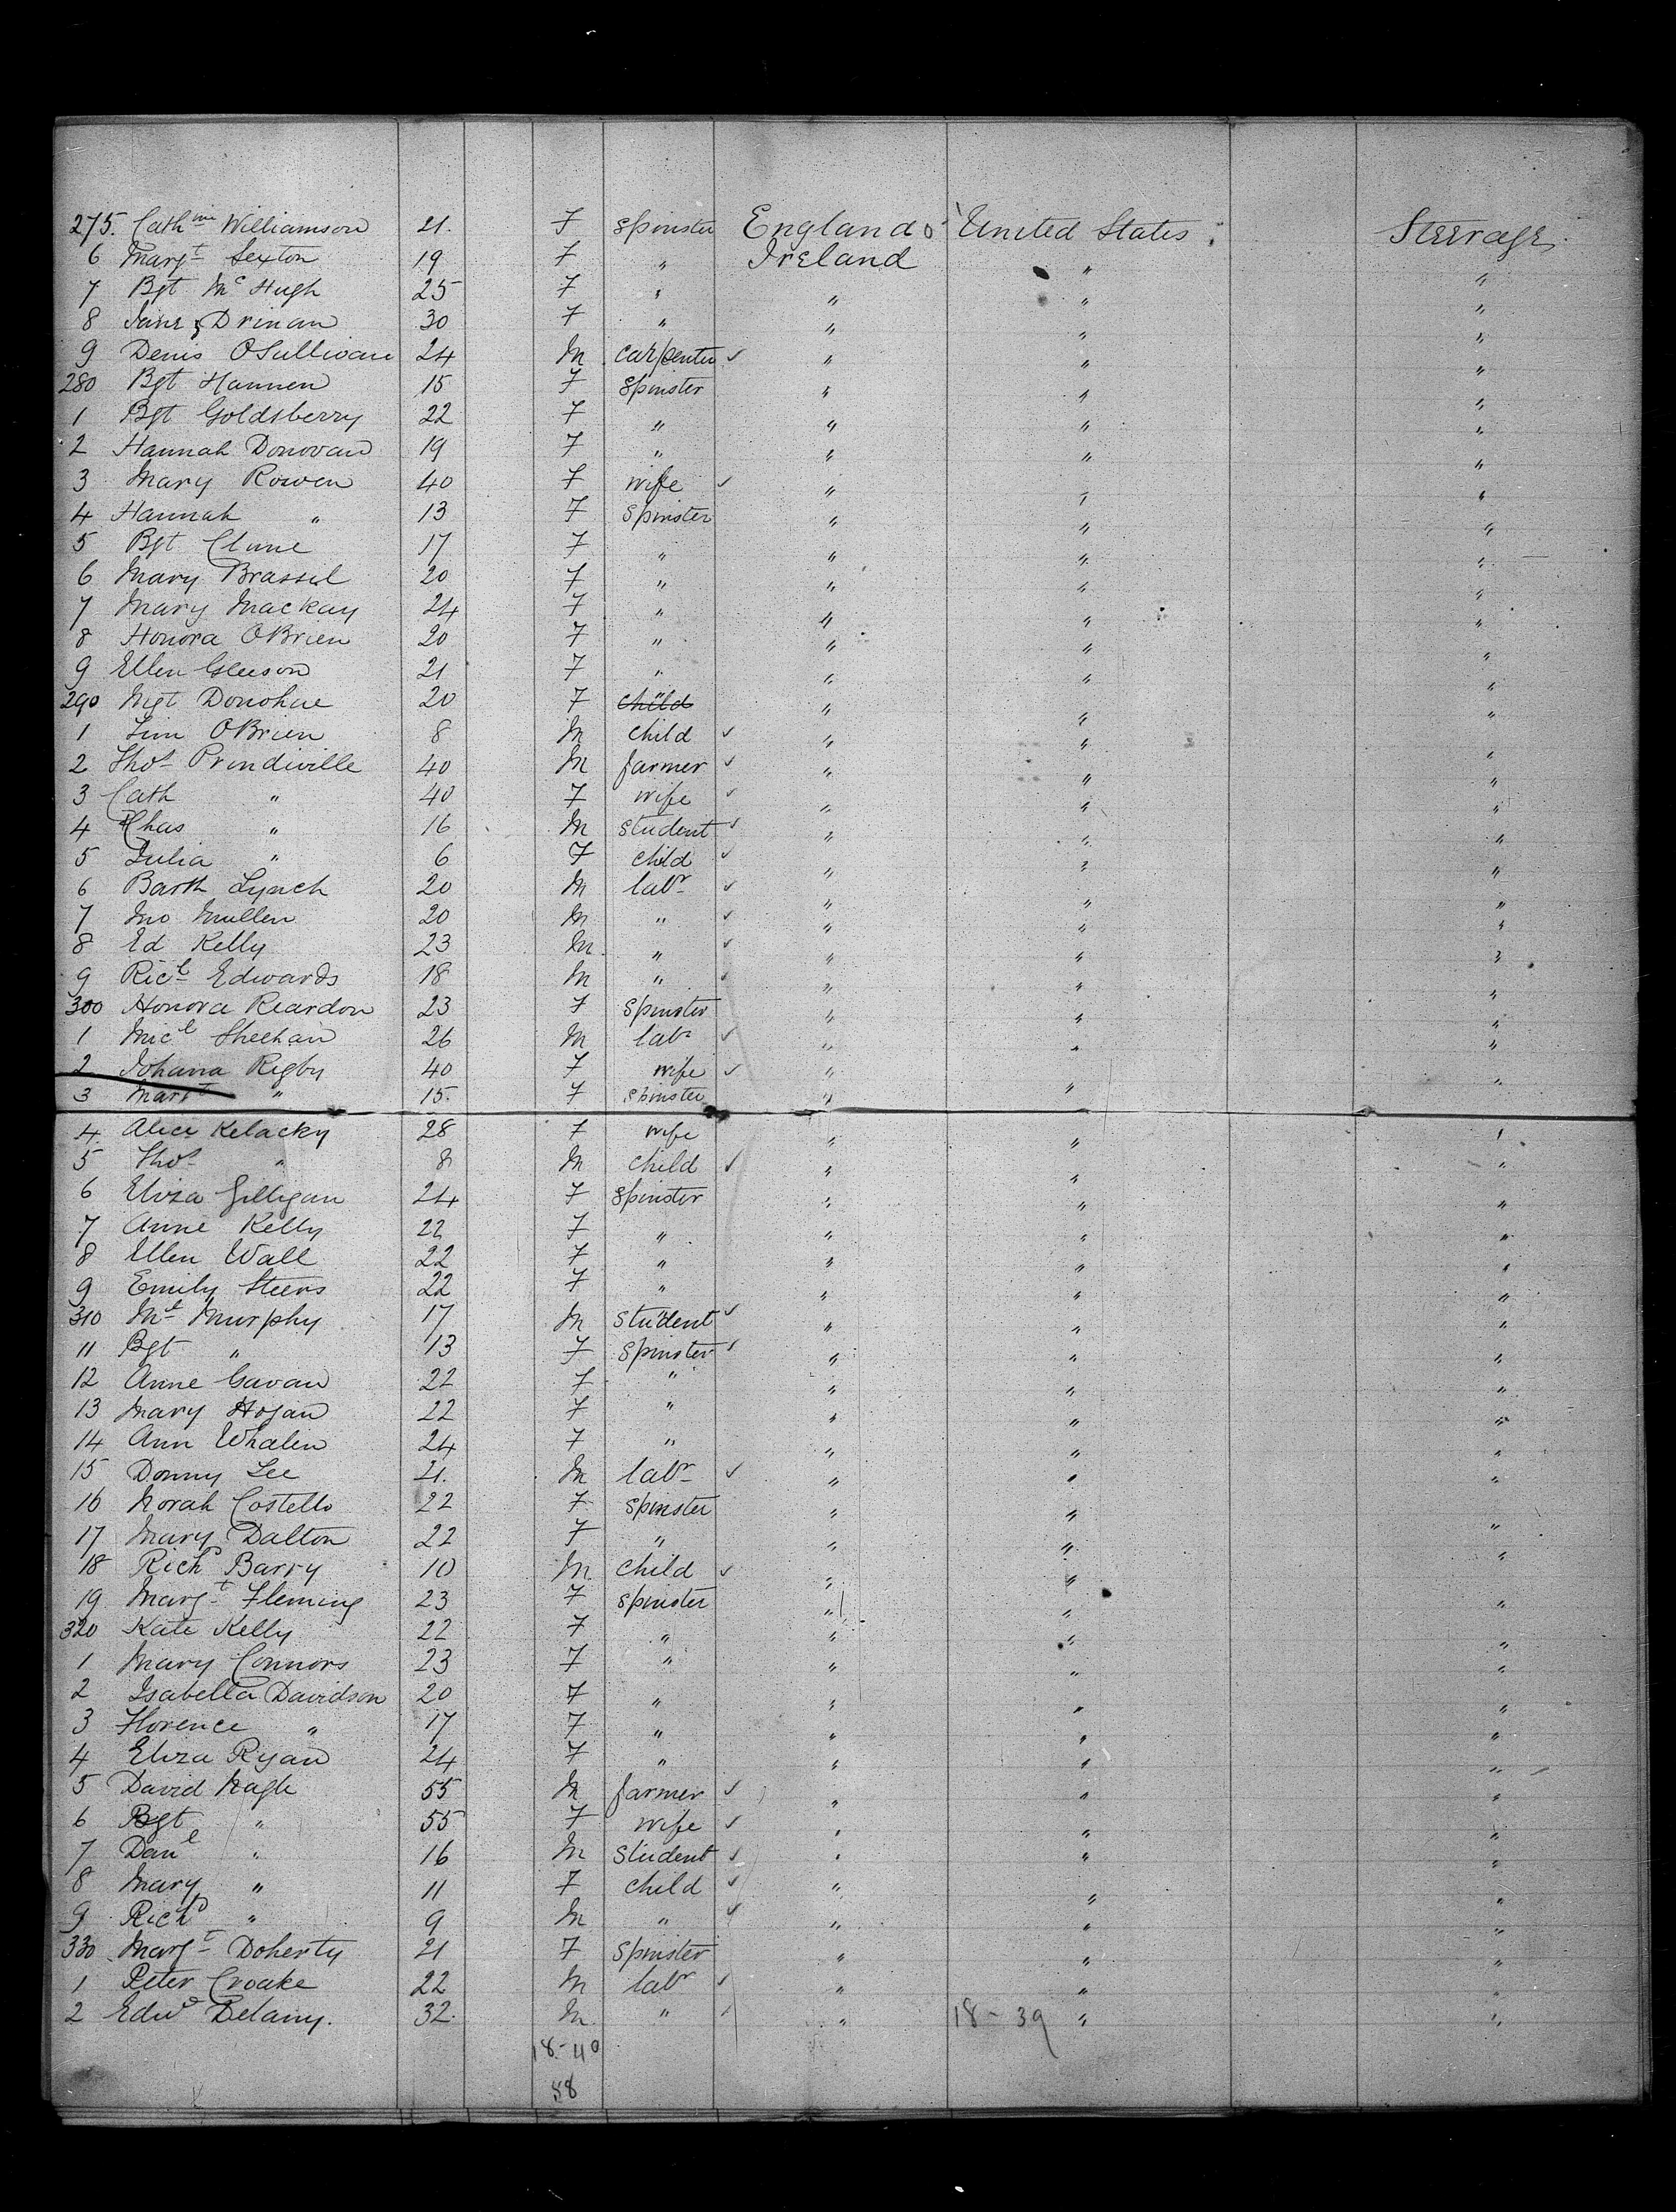 275. Cathine Williamson 21. F Spinster England United States Steerage
6 Margt Sexton 19 F " Ireland " "
7 Bgt McHugh 25 F " " " "
8 Jane Drinan 30 F " " " "
9 Denis OSullivan 24 M Carpenter " " "
280 Bgt Hannen 15 F Spinster " " "
1 Bgt Goldsberry 22 F " " " "
2 Hannah Donovan 19 F " " " "
3 Mary Rowen 40 F wife " " "
4 Hannah " 13 F Spinster " " "
5 Bgt Clune 17 F " " " "
6 Mary Brassil 20 F " " " "
7 Mary Mackay 24 F " " " "
8 Honora OBrien 20 F " " " "
9 Ellen Gleeson 21 F " " " "
290 Mgt Donohue 20 F child " " "
1 Jim OBrien 8 M child " " "
2 Thos Prindiville 40 M farmer " " "
3 Cath " 40 F wife " " "
4 Chas " 16 M Student " " "
5 Julia " 6 F child " " "
6 Barth Lynch 20 M labr " " "
7 Jno Mullen 20 M " " " "
8 Ed Kelly 23 M " " " "
9 Ricd Edwards 18 M " " " "
300 Honora Reardon 23 F Spinster " " "
1 Micl Sheehan 26 M labr " " "
2 Johana Rigby 40 F wife " " "
3 Mart " 15. F Spinster "
4. Alice Kelacky 28 F wife " " "
5 Thos " 8 M Child " " "
6 Eliza Gilligan 24 F Spinster " " "
7 Anne Kelly 22 F " " " "
8 Ellen Wall 22 F " " " "
9 Emily Steers 22 F " " " "
310 Ml Murphy 17 M Student " " "
11 Bgt " 13 F Spinster " " "
12 Anne Gavan 22 F " " " "
13 Mary Hogan 22 F " " " "
14 Ann Whalen 24 F " " " "
15 Donny Lee 21. M labr " " "
16 Norah Costello 22 F Spinster " " "
17 Mary Dalton 22 F " " " "
18 Richd Barry 10 M Child " " "
19 Margt Fleming 23 F Spinster " " "
320 Kate Kelly 22 F " " " "
1 Mary Connors 23 F " " " "
2 Isabella Davidson 20 F " " " "
3 Florence " 17 F " " " "
4 Eliza Ryan 24 F " " " "
5 David Nagle 55 M farmer " " "
6 Bgt " 55 F wife " " "
7 Danl " 16 M Student " " "
8 Mary " 11 F child " " "
9 Richd " 9 M " " " "
330 Margt Doherty 21 F Spinster " " "
1 Peter Croake 22 M labr " " "
2 Edwd Delany. 32. M " " 18-39 " "
18-40
58